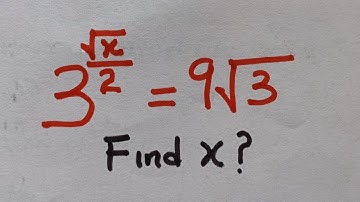 3^{\frac{\sqrt{x}}{2}} = 9\sqrt{3}
Find X?